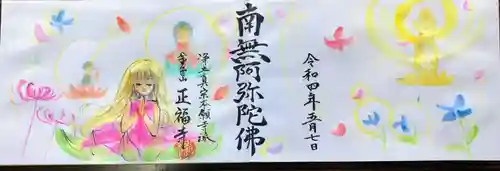 令和四年五月七日
南無阿弥陀佛
浄土真宗本願寺派
正福寺